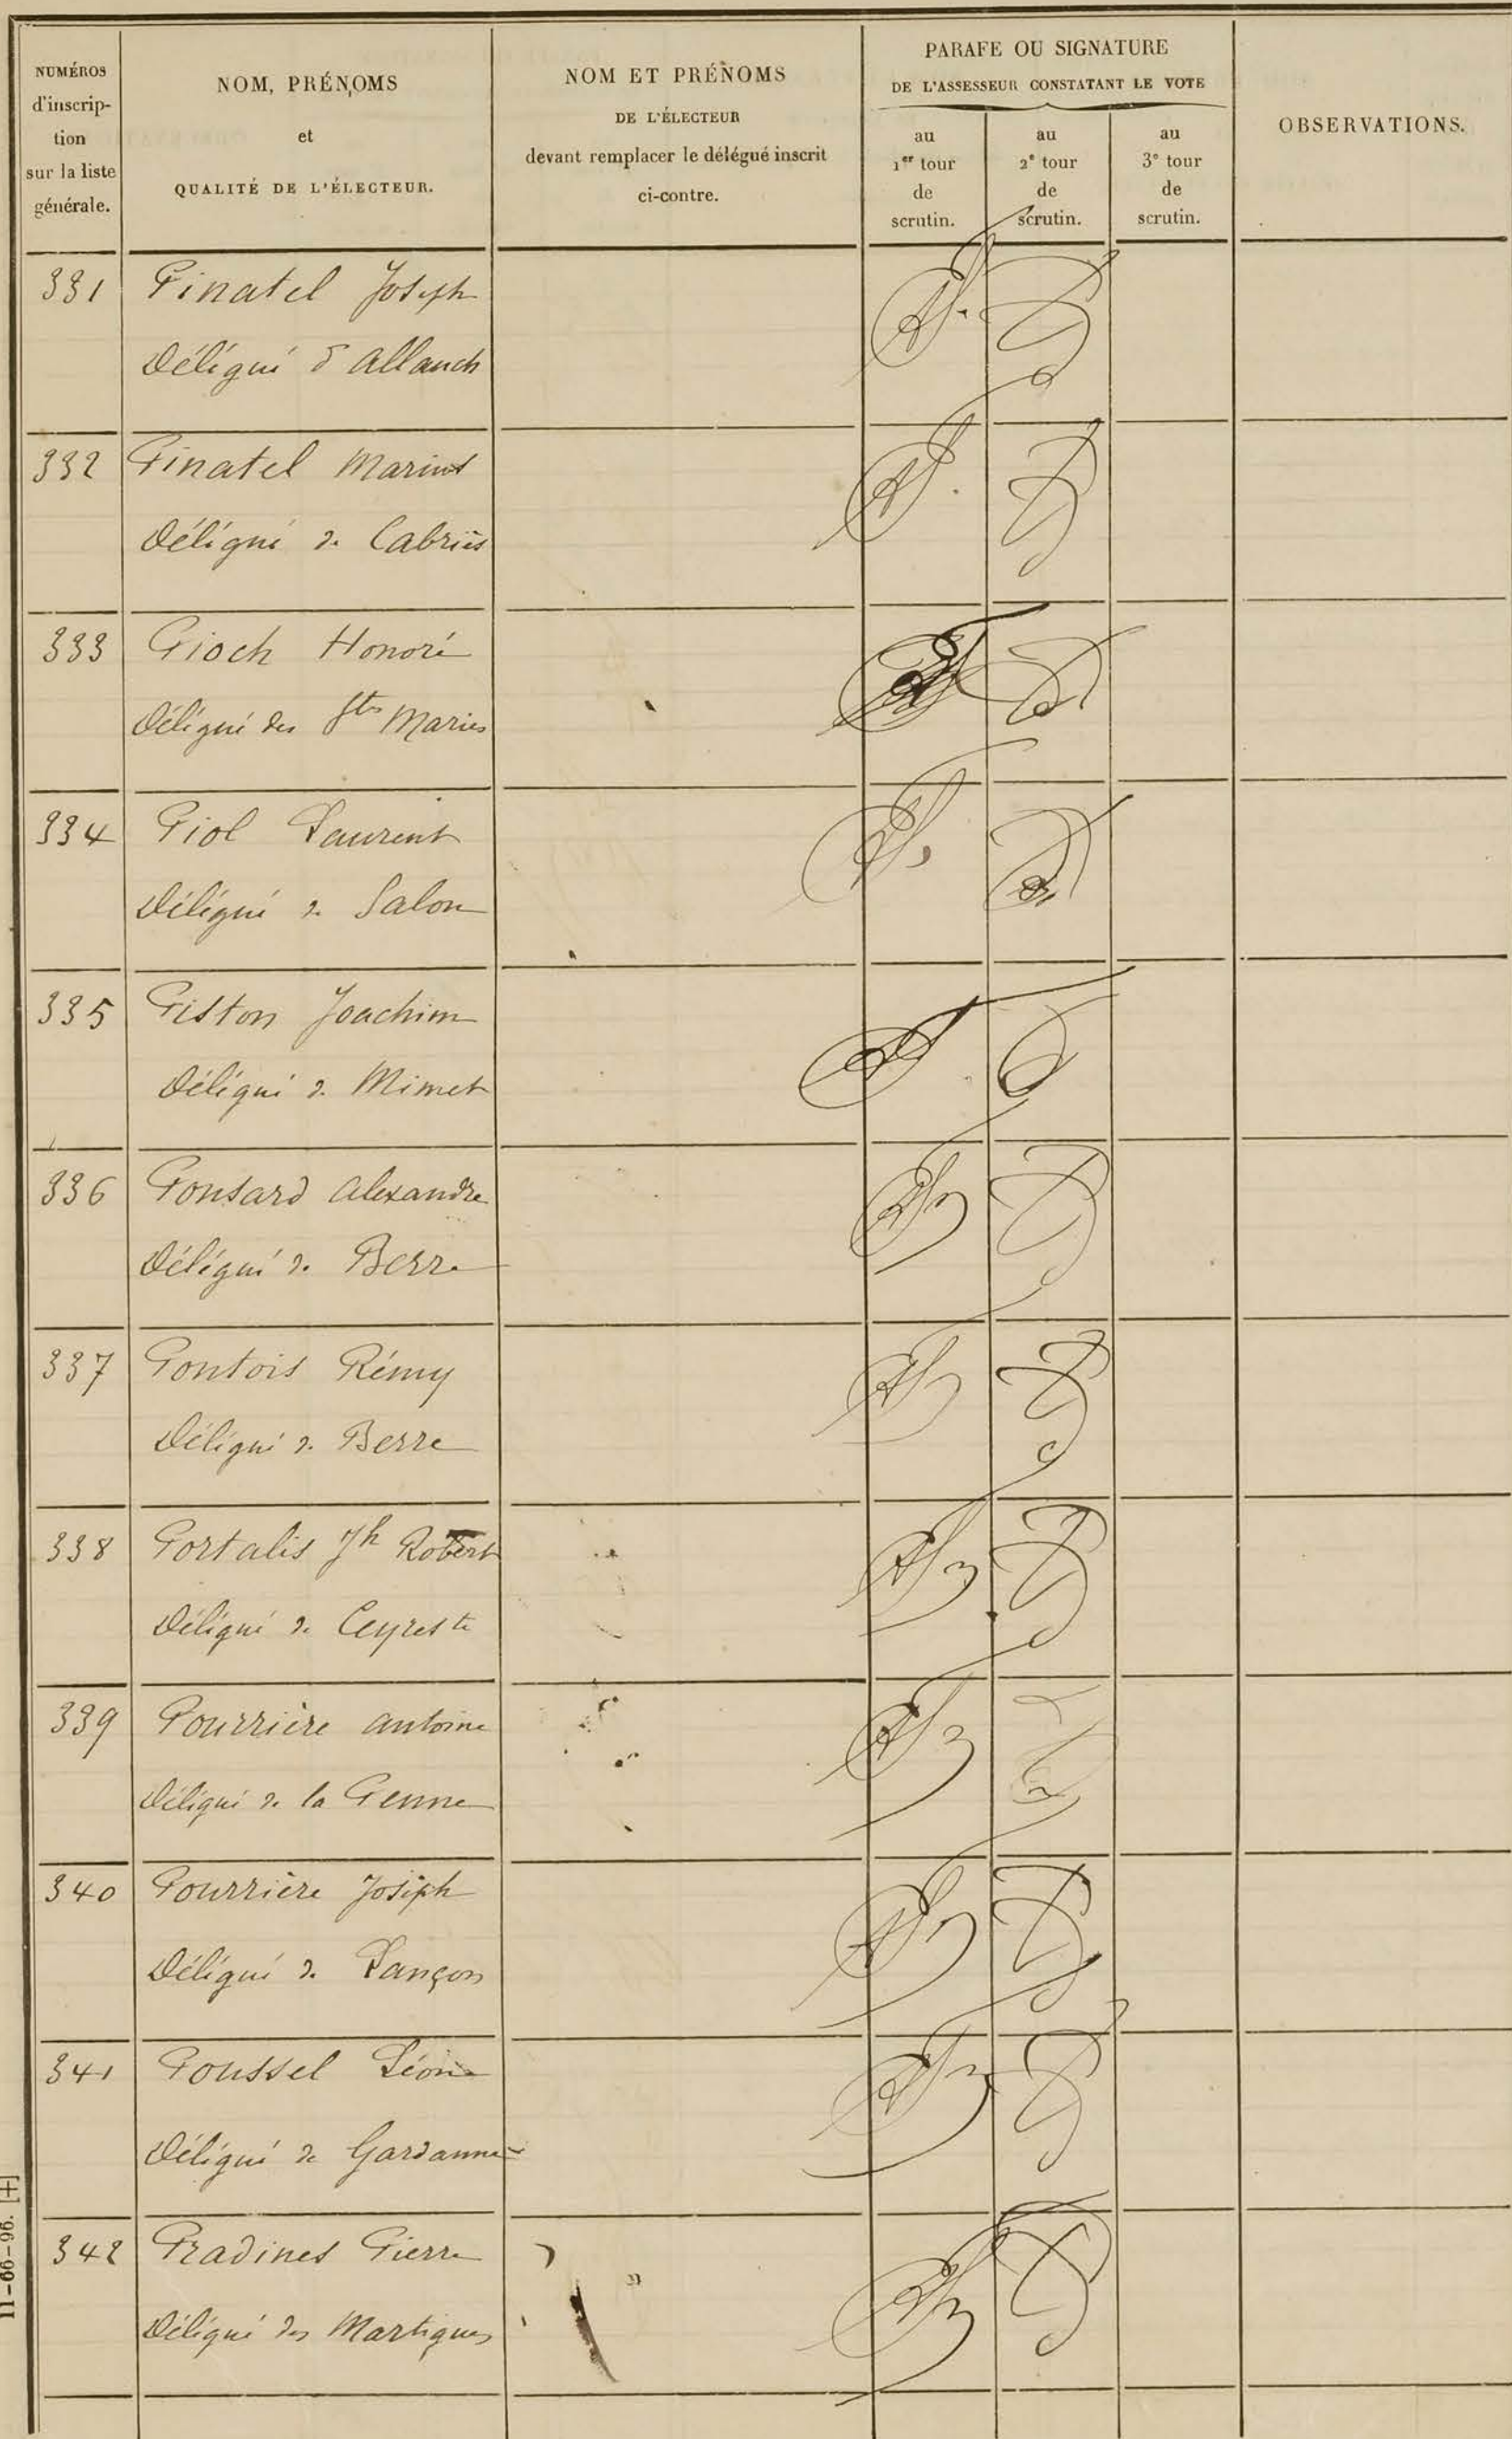 NUMÉROS
d'inscrip-
tion
sur la liste
générale.
NOM, PRÉNOMS
et
QUALITÉ DE L'ÉLECTEUR.
NOM ET PRÉNOMS
DE L'ÉLECTEUR
devant remplacer le délégué inscrit
ci-contre.
PARAFE OU SIGNATURE
DE L'ASSESSEUR CONSTATANT LE VOTE
au
1er tour
de
scrutin.
au
2e tour
de
scrutin.
au
3e tour
de
scrutin.
OBSERVATIONS.
331 Pinatel Joseph
Délégué d'Allauch
332 Pinatel Marius
Délégué de Cabriès
333 Pioch Honoré
Délégué des Stes Maries
334 Piol Laurent
Délégué de Salon
335 Piston Joachim
Délégué de Mimet
336 Ponsard Alexandre
Délégué de Berre
337 Pontois Rémy
Délégué de Berre
338 Portalis Jh Robert
Délégué de Ceyreste
339 Pourrière Antoine
Délégué de la Penne
340 Pourrière Joseph
Délégué de Lançon
341 Poussel Léon
Délégué de Gardanne
342 Pradines Pierre
Délégué des Martigues
11-66-96. [+]